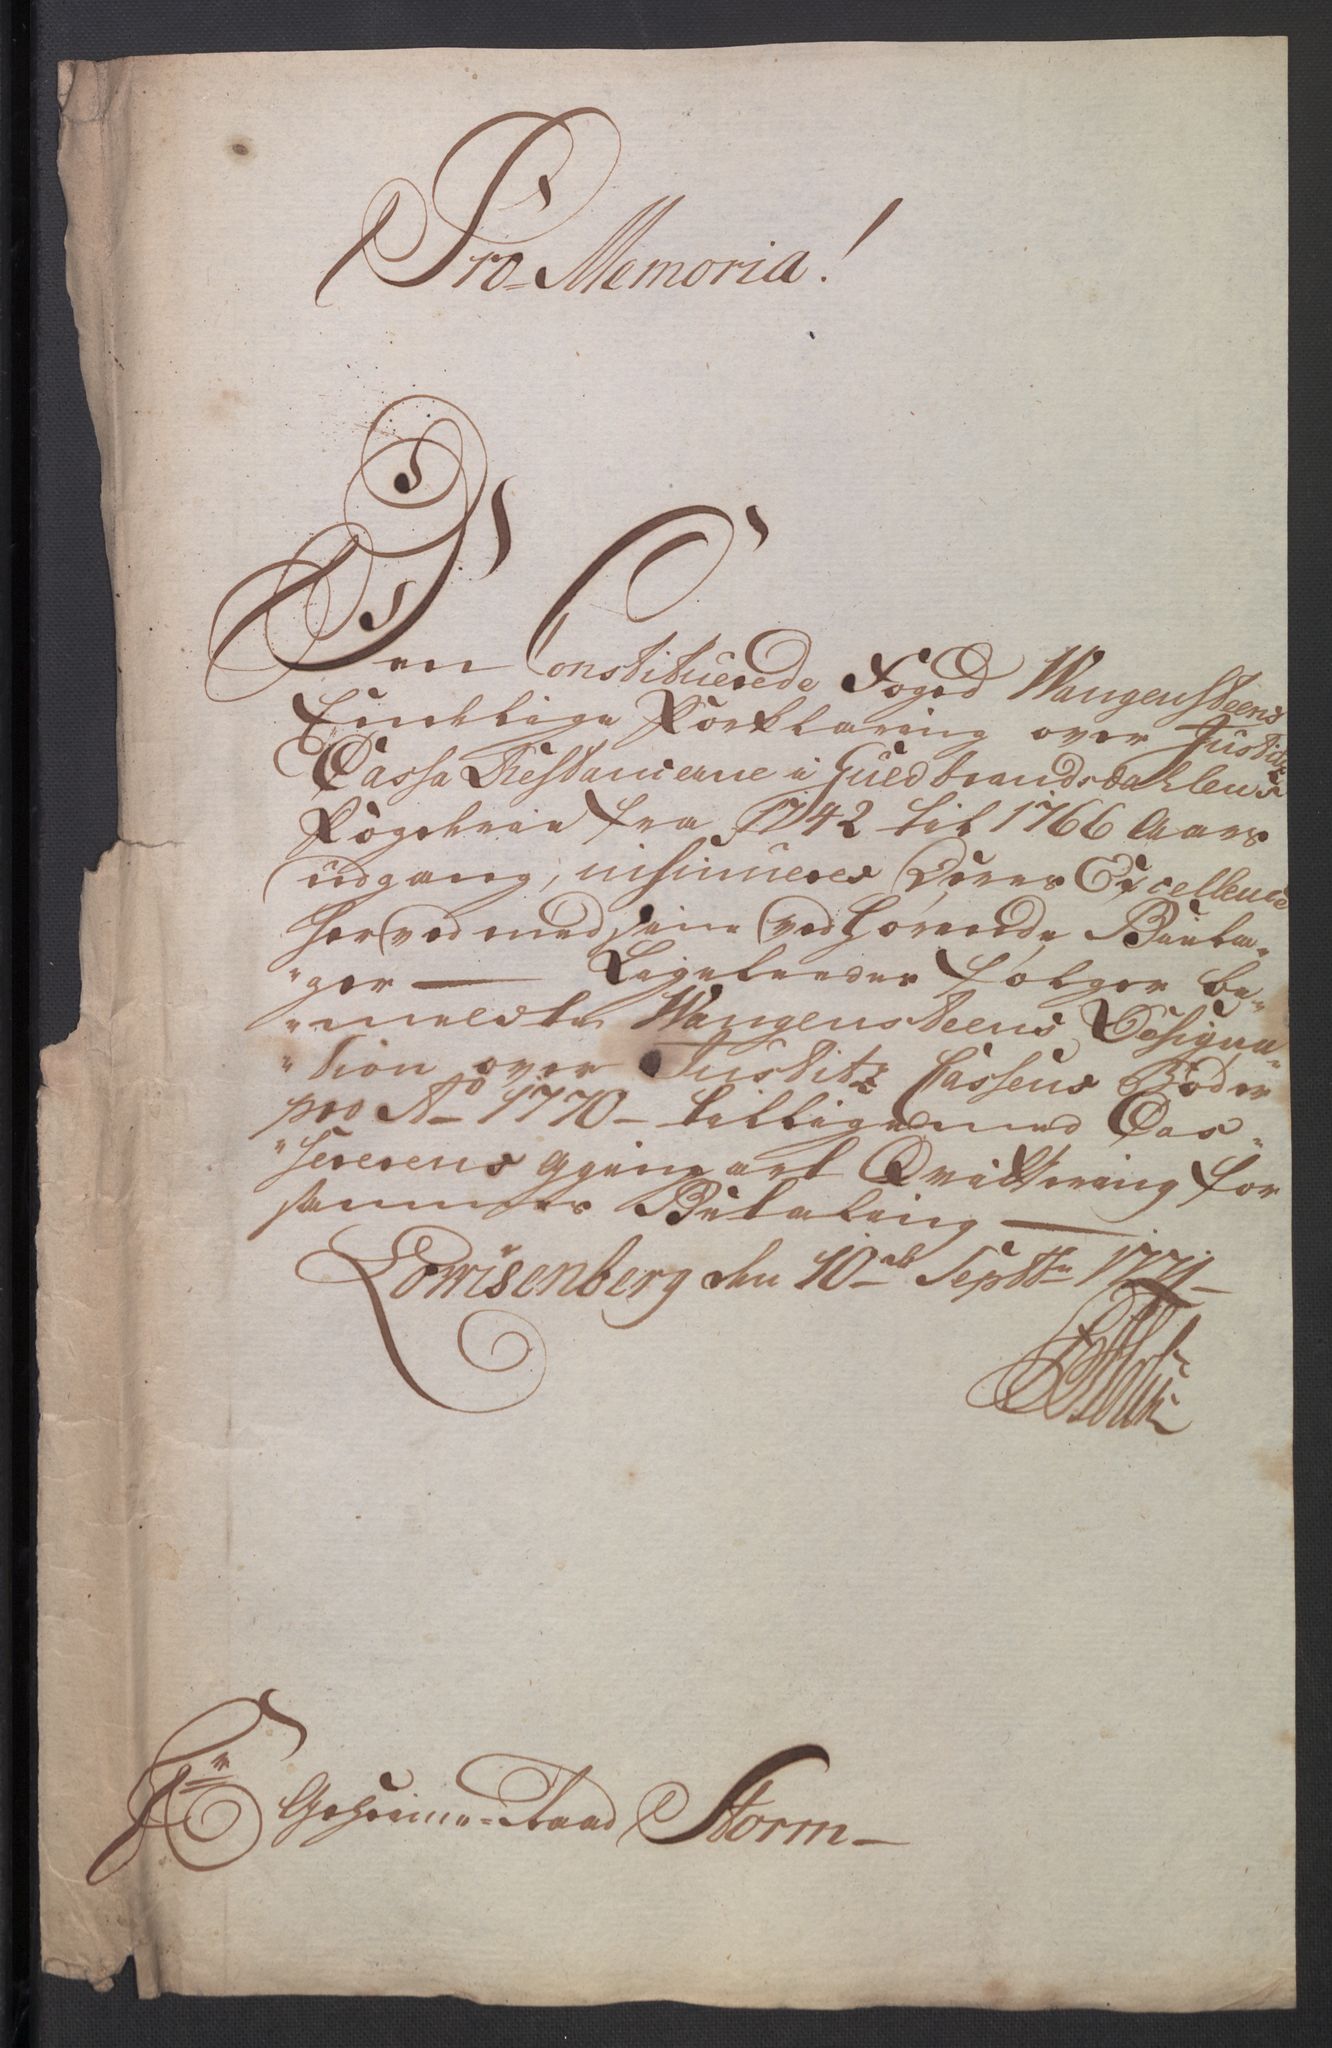 Pro-Memoria!
Den Constituerede Foged Wangensteens
Endelige Forklaring over Justitz
Cassa Restancerne i Guldbrandsdahlens
Fogderie fra 1742 til 1766 Aars
udgang, insinueres Deres Excellence
herved med sine vedhørende Biela-
"ger — Ligeleedes følger be-
"meldte Wangensteens Designa-
"tion over Justitz Cassens Bøder
pro Ao 1770 - tilligemed Cas-
"sererens Qvittering for
sammes Betaling —
Lowisenberg den 10de Septbr 1771-
Hr Geheime-Raad Storm-